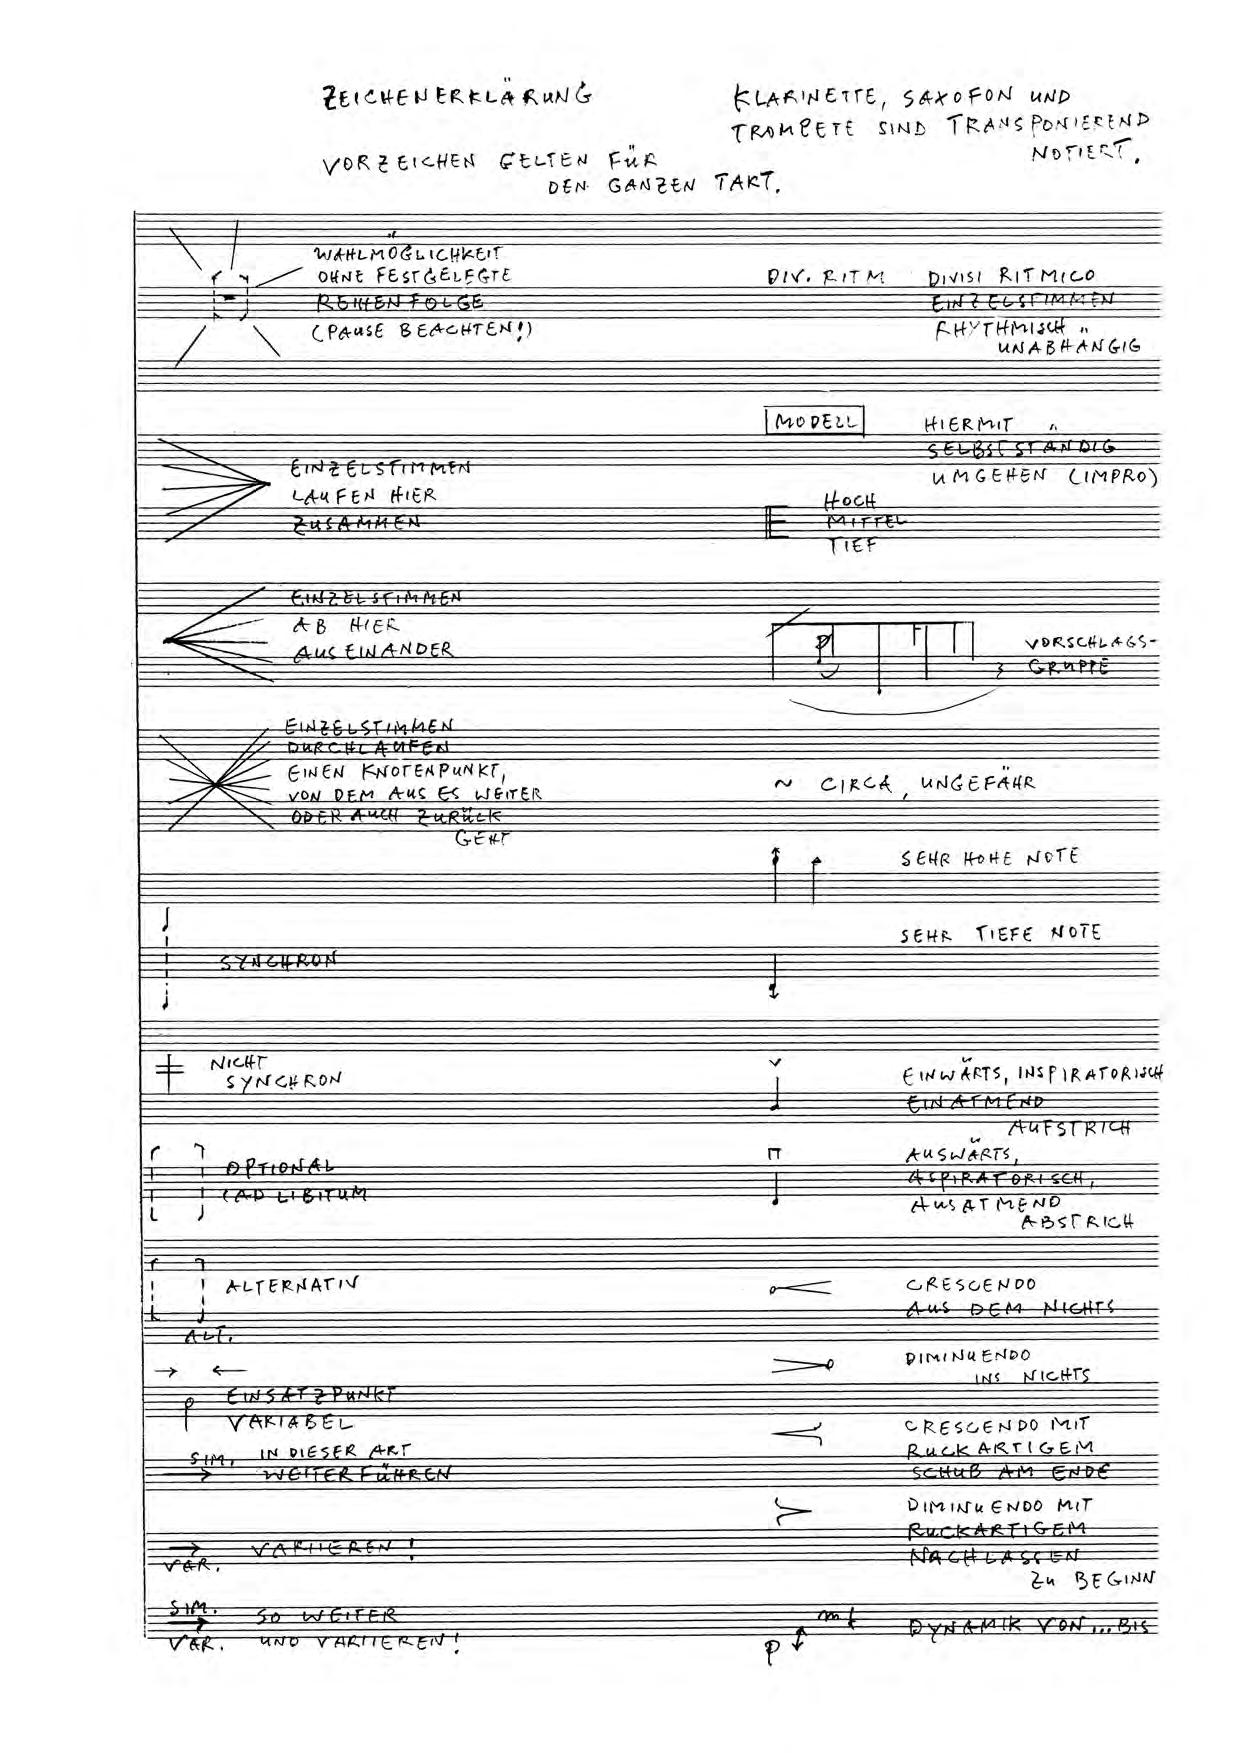 ZEICHENERKLÄRUNG
VORZEICHEN GELTEN FÜR
DEN GANZEN TAKT.
KLARINETTE, SAXOFON UND
TROMPETE SIND TRANSPONIEREND
NOTIERT.
WAHLMÖGLICHKEIT
OHNE FESTGELEGTE
REIHENFOLGE
(PAUSE BEACHTEN!)
EINZELSTIMMEN
LAUFEN HIER
ZUSAMMEN
EINZELSTIMMEN
AB HIER
AUSEINANDER
EINZELSTIMMEN
DURCHLAUFEN
EINEN KNOTENPUNKT,
VON DEM AUS ES WEITER
ODER AUCH ZURÜCK
GEHT
SYNCHRON
NICHT
SYNCHRON
OPTIONAL
(AD LIBITUM
ALTERNATIV
ALT.
EINSATZPUNKT
VARIABEL
SIM. IN DIESER ART
WEITERFÜHREN
VARIIEREN!
VAR.
SIM. SO WEITER
VAR. UND VARIIEREN!
DIV. RITM DIVISI RITMICO
EINZELSTIMMEN
RHYTHMISCH
UNABHÄNGIG
MODELL HIERMIT
SELBSTSTÄNDIG
UMGEHEN (IMPRO)
HOCH
MITTEL
TIEF
VORSCHLAGS-
GRUPPE
~ CIRCA, UNGEFÄHR
SEHR HOHE NOTE
SEHR TIEFE NOTE
EINWÄRTS, INSPIRATORISCH
EINATMEND
AUFSTRICH
AUSWÄRTS,
ASPIRATORISCH,
AUSATMEND
ABSTRICH
CRESCENDO
AUS DEM NICHTS
DIMINUENDO
INS NICHTS
CRESCENDO MIT
RUCKARTIGEM
SCHUB AM ENDE
DIMINUENDO MIT
RUCKARTIGEM
NACHLASSEN
ZU BEGINN
mf DYNAMIK VON...BIS
p